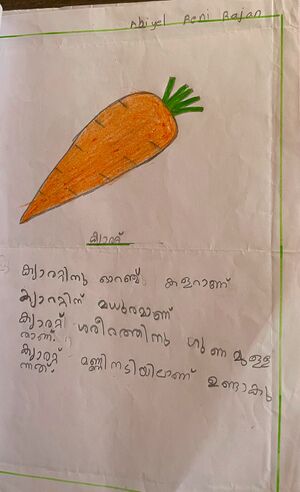 Abiyel Beni Rajan
ക്യാരറ്റ്
ക്യാരറ്റിനു ഓറഞ്ച് കളറാണ്
ക്യാരറ്റിന് മധുരമാണ്
ക്യാരറ്റ് ശരീരത്തിനു ഗുണമുള്ള
താണ്.
ക്യാരറ്റ് മണ്ണിനടിയിലാണ് ഉണ്ടാകു
ന്നത്.